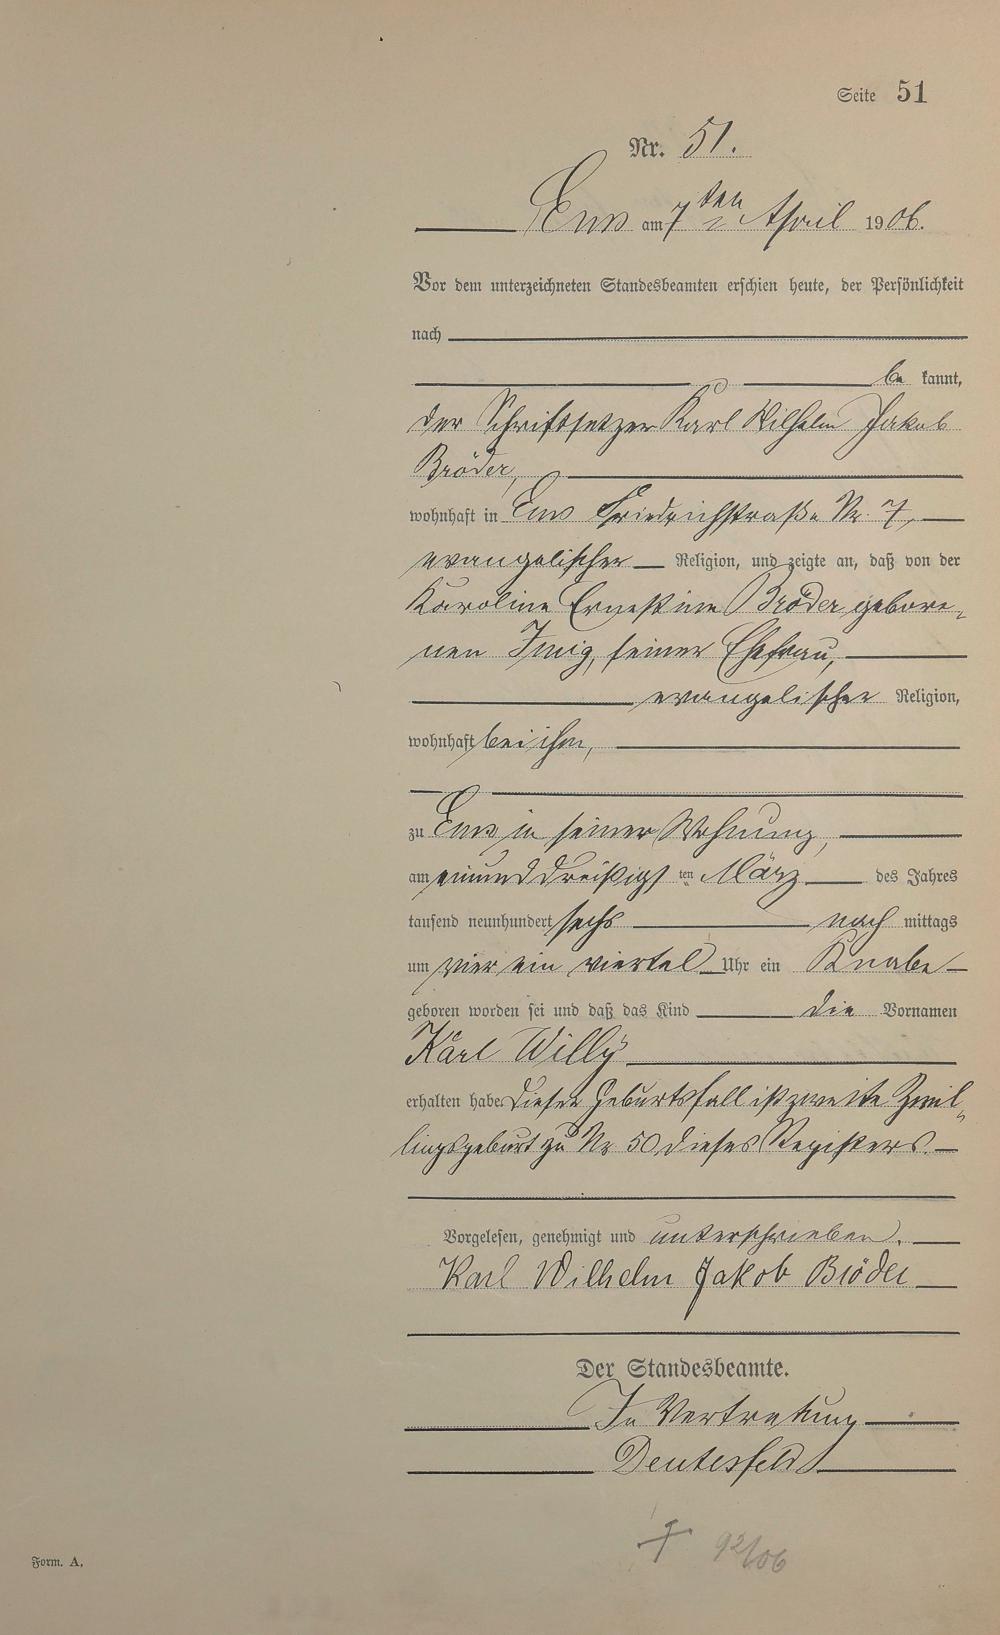 Seite 51
Nr. 51.
Ems am 7ten April 1906.
Vor dem unterzeichneten Standesbeamten erschien heute, der Persönlichkeit
nach
be kannt,
der Schriftsetzer Karl Wilhelm Jakob
Bröder,
wohnhaft in Ems Friedrichstraße Nr. 7,
evangelischer Religion, und zeigte an, daß von der
Karoline Ernestine Bröder gebore-
nen Immig, seiner Ehefrau,
evangelischer Religion,
wohnhaft bei ihm,
zu Ems in seiner Wohnung,
am einunddreißigsten März des Jahres
tausend neunhundert sechs nach mittags
um vier ein viertel Uhr ein Knabe
geboren worden sei und daß das Kind die Vornamen
Karl Willy
erhalten habe. Dieser Geburtsfall ist zweite Zwil-
lingsgeburt zu Nr 50 dieses Registers.
Vorgelesen, genehmigt und unterschrieben.
Karl Wilhelm Jakob Bröder
Der Standesbeamte.
In Vertretung
Deutesfeld
† 92/06
Form. A.